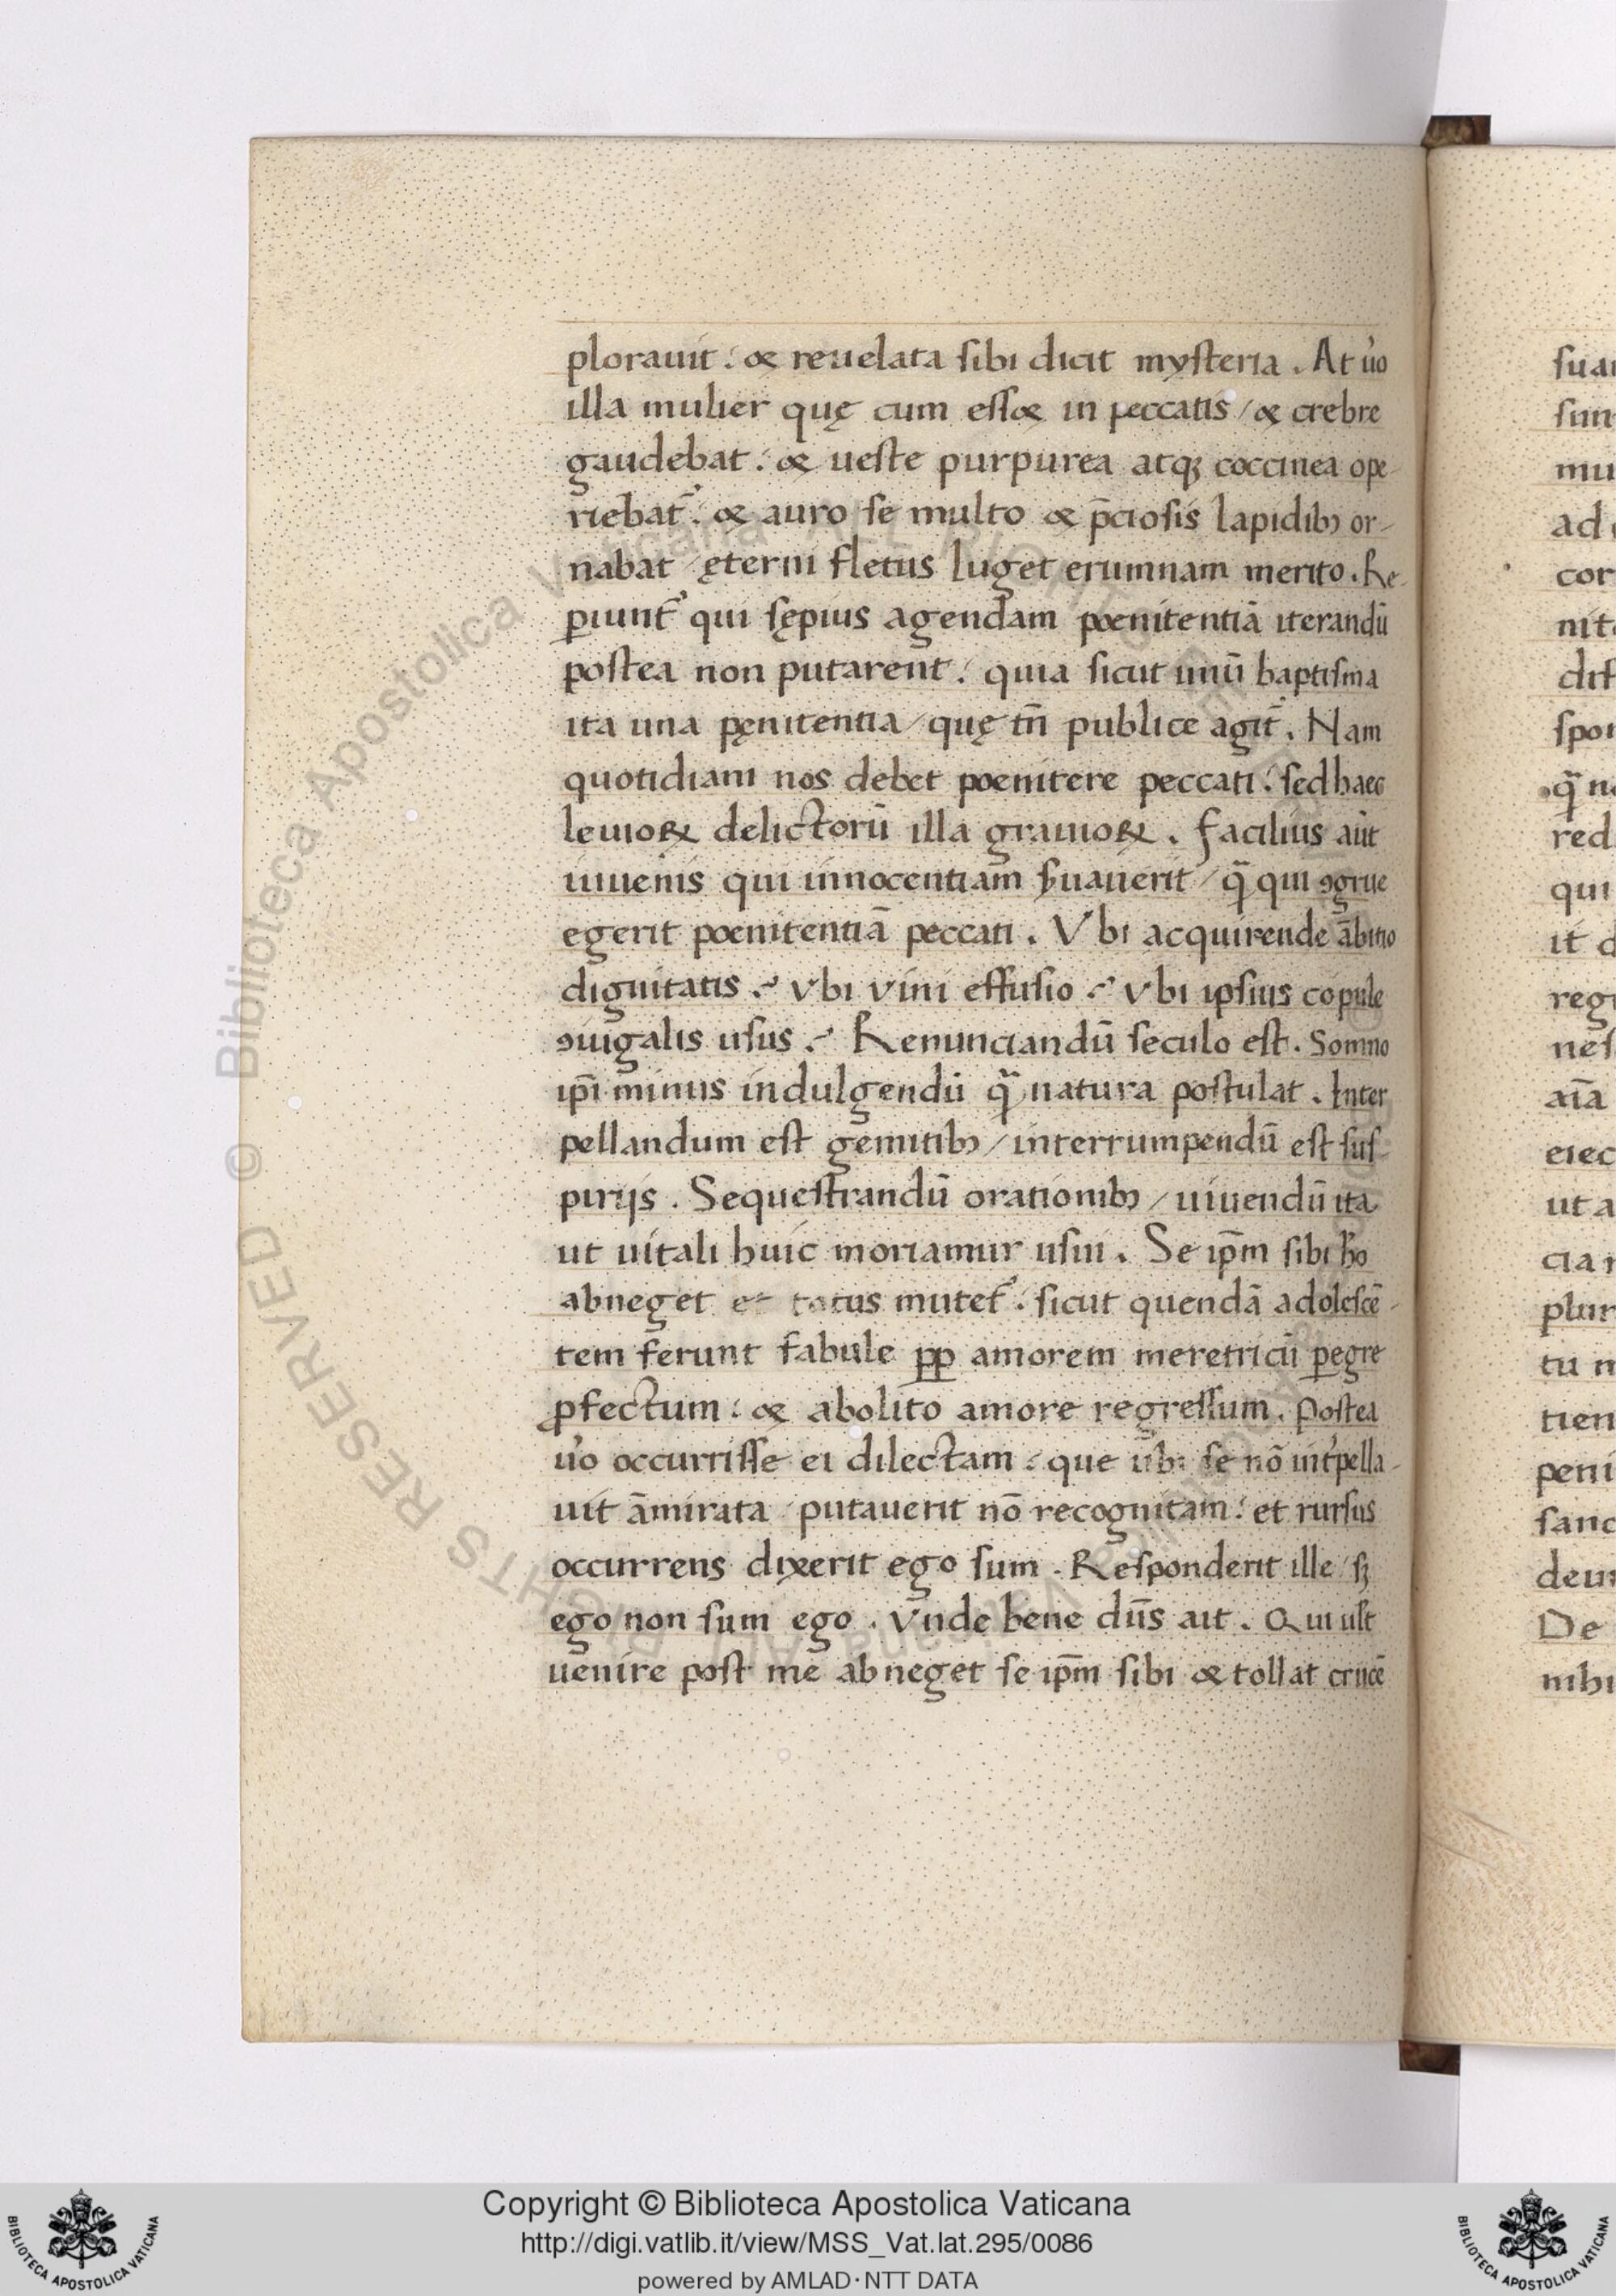 plorauit: & reuelata sibi dicit mysteria. At u̓o
illa mulier quę cum ess& in peccatis / & crebre
gaudebat: & ueste purpurea atqꝫ coccinea ope-
riebat᷑: & auro se multo & p̄ciosis lapidibꝫ or-
nabat / ęterni fletus luget erumnam merito. Re-
ꝑiunt᷑ qui sępius agendam poenitentiā iterandū
postea non putarent: quia sicut unū baptisma
ita una pęnitentia / quę tn̄ publice agit᷑. Nam
quotidiani nos debet poenitere peccati: sed haec
leuioꝝ delictorū illa grauioꝝ. Facilius aūt
inuenis qui innocentiam ẜuauerit / qᷓ qui ꝯgrue
egerit poenitentiā peccati. Vbi acquirende ābitio
dignitatis? vbi vini effusio? vbi ipsius copule
ꝯiugalis usus? Renunciandū seculo est. Somno
ip̄i minus indulgendū qᷓ natura postulat. Inter
pellandum est gemitibꝫ / interrumpendū est sus-
pirijs. Sequestrandū orationibꝫ / uiuendū ita
ut uitali huic moriamur usui. Se ip̄m sibi ho̅
abneget et totus mutet᷑: sicut quendā adolescē-
tem ferunt fabule ꝓꝑ amorem meretricū ꝑegre
ꝓfectum: & abolito amore regressum. Postea
u̓o occurrisse ei dilectam: que ubi se nō int̓pella-
uit āmirata / putauerit nō recognitam: et rursus
occurrens dixerit ego sum. Responderit ille / sꝫ
ego non sum ego. Vnde bene dn̄s ait. Qui uult
uenire post me abneget se ip̄m sibi & tollat crucē
suar
sun
mu
ad
cor
nit
dif
spon
qᷓ n
red
qui
it d
reg
nes
aīa
eiec
ut a
cia
plur
tu n
tien
peni
sanc
deu
De
nihi
© Biblioteca Apostolica Vaticana ALL RIGHTS RESERVED
Copyright © Biblioteca Apostolica Vaticana
http://digi.vatlib.it/view/MSS_Vat.lat.295/0086
powered by AMLAD·NTT DATA
BIBLIOTECA APOSTOLICA VATICANA
BIBLIOTECA APOSTOLICA VATICANA